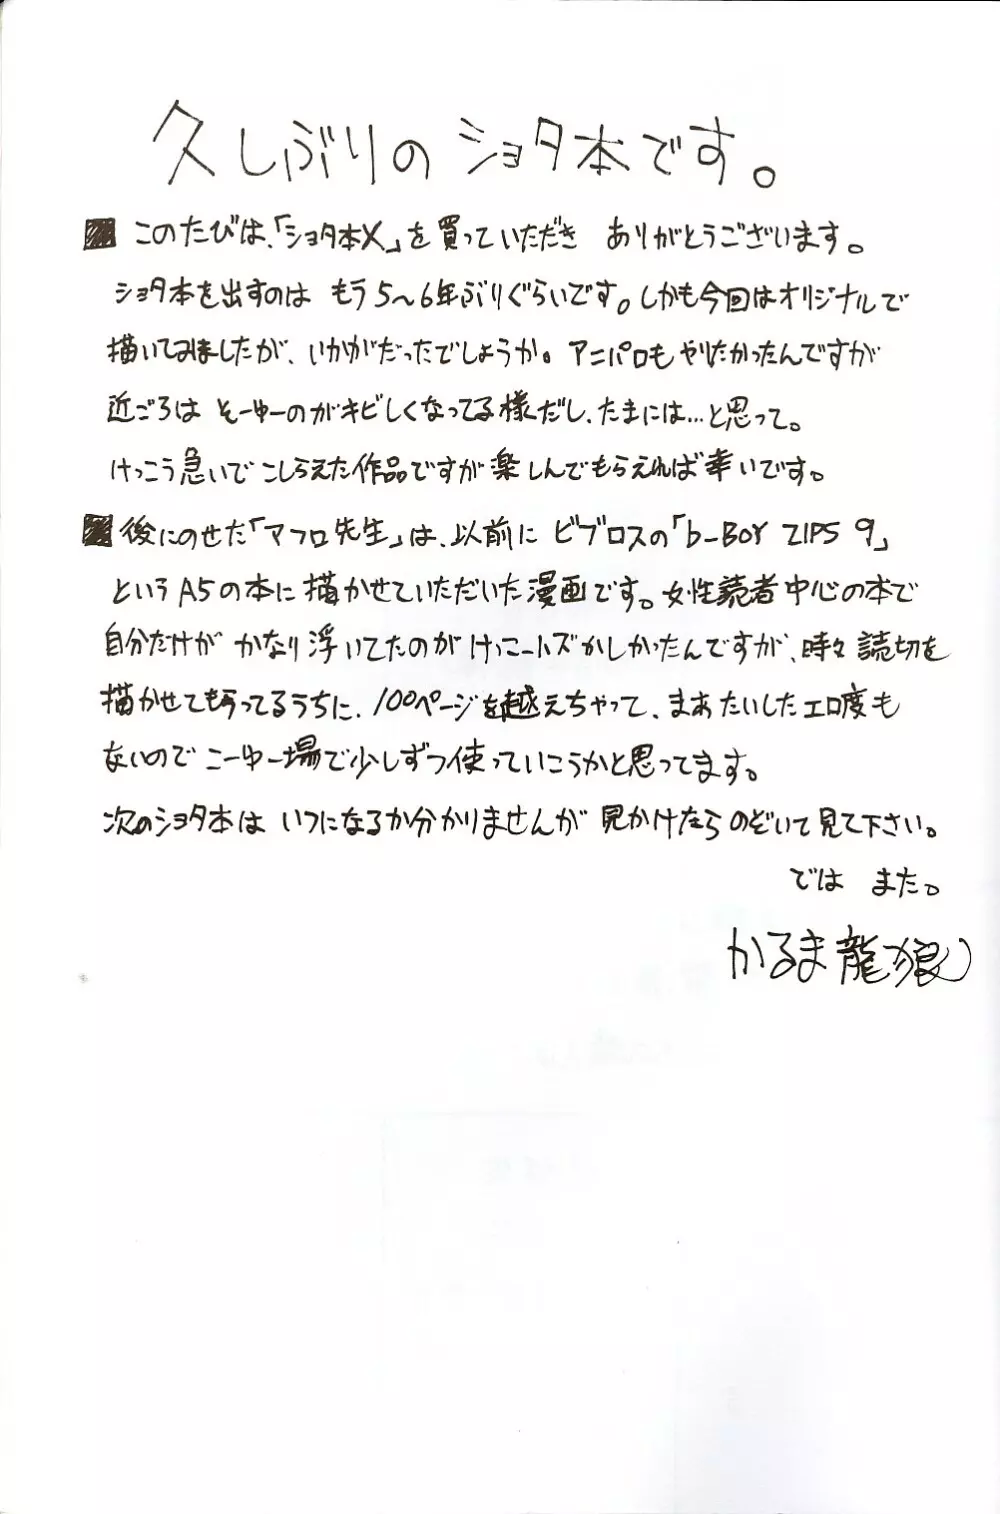 久しぶりのショタ本です。
■ このたびは、「ショタ本X」を買っていただき ありがとうございます。
ショタ本を出すのは もう5〜6年ぶりぐらいです。しかも今回はオリジナルで
描いてみましたが、いかがだったでしょうか。アニパロもやりたかったんですが
近ごろは そーゆーのがキビしくなってる様だし、たまには…と思って。
けっこう急いでこしらえた作品ですが楽しんでもらえれば幸いです。
■ 後にのせた「アフロ先生」は、以前に ビブロスの「b-BOY ZIPS 9」
というA5の本に描かせていただいた漫画です。女性読者中心の本で
自分だけが かなり浮いてたのがけっこーハズかしかったんですが、時々読切を
描かせてもらってるうちに、100ページを越えちゃって、まあたいしたエロ度も
ないのでこーゆー場で少しずつ使っていこうかと思ってます。
次のショタ本は いつになるか分かりませんが 見かけたらのぞいて見て下さい。
では また。
かるま龍狼